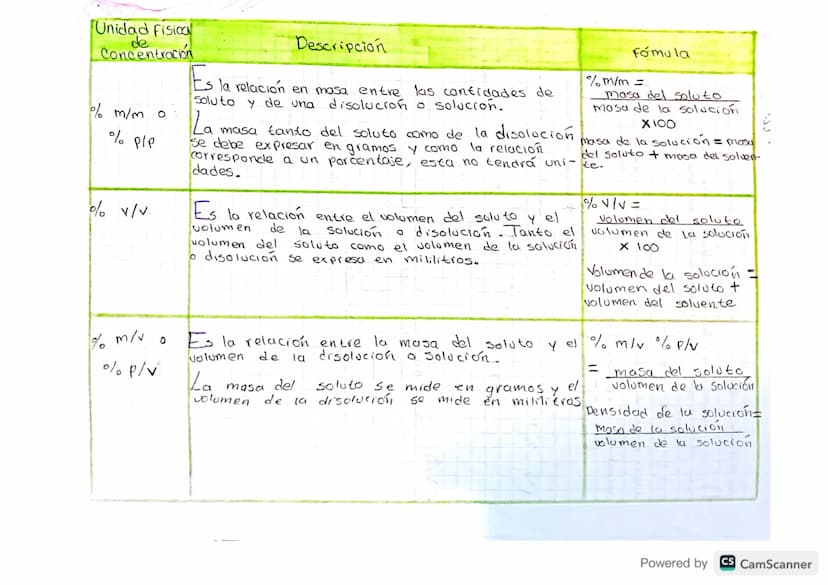 Unidad Física
de
Concentración
Descripción
Fórmula
% m/m o
% p/p
Es la relación en masa entre las cantidades de
soluto y de una disolución o solución.
La masa tanto del soluto como de la disolución
se debe expresar en gramos y como la relación
corresponde a un porcentaje, esta no tendrá uni-
dades.
% m/m =
masa del soluto
masa de la solución
x100
masa de la solución = masa
del soluto + masa del solven-
te.
% v/v
Es la relación entre el volumen del soluto y el
volumen de la solución o disolución. Tanto el
volumen del soluto como el volumen de la solución
o disolución se expresa en mililitros.
% v/v =
volumen del soluto
volumen de la solución
x 100
Volumen de la solución =
volumen del soluto +
volumen del solvente
% m/v o
% p/v
Es la relación entre la masa del soluto y el
volumen de la disolución o solución.
La masa del soluto se mide en gramos y el
volumen de la disolución se mide en mililitros
% m/v % p/v
= masa del soluto
volumen de la solución
Densidad de la solución=
Masa de la solución
volumen de la solución
Powered by CS CamScanner